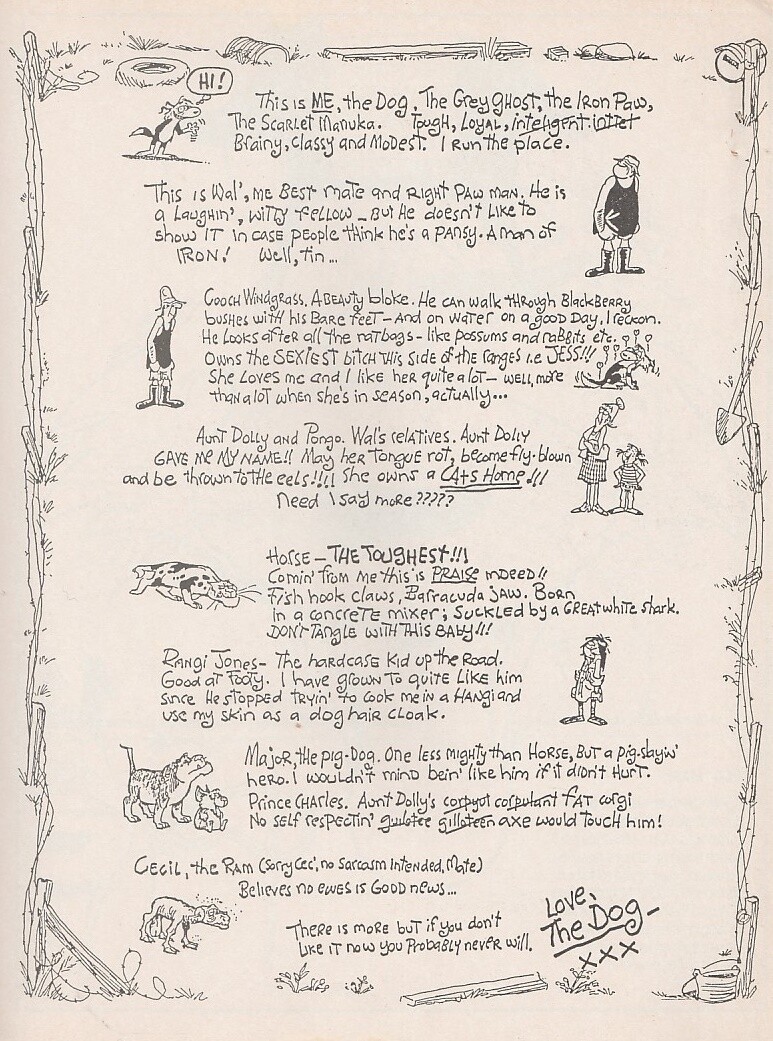 HI!
This is ME, the Dog, The Grey Ghost, the Iron Paw,
The Scarlet Manuka. Tough, Loyal, inteligent intlet
Brainy, classy and Modest. I run the place.
This is Wal', me Best mate and right paw man. He is
a laughin', witty fellow - But He doesn't like to
show IT in case people think he's a pansy. A man of
IRON! Well, tin...
Cooch Windgrass. A Beauty bloke. He can walk through Blackberry
bushes with his Bare feet - And on water on a good day, I reckon.
He looks after all the ratbags - like possums and rabbits etc.
Owns the SEXIEST bitch this side of the ranges i.e. JESS!!!
She Loves me and I like her quite a lot - well, more
than a lot when she's in season, actually...
Aunt Dolly and Pongo. Wal's relatives. Aunt Dolly
GAVE ME MY NAME!! May her tongue rot, become fly-blown
and be thrown to the eels!!!! She owns a CAts Home!!!
Need I say more ?????
Horse - THE TOUGHEST!!!
Comin' from me this is PRAISE indeed!!
Fish hook claws, Barracuda jaw. Born
in a concrete mixer; suckled by a GREAT white shark.
DON'T TANGLE WITH THIS BABY!!!
Rangi Jones - The hardcase kid up the Road.
Good at footy. I have grown to quite like him
since He stopped tryin' to cook me in a HANGI and
use my skin as a dog hair cloak.
Major, the pig-Dog. One less mighty than HORSE, But a pig-slayin'
hero. I wouldn't mind bein' like him if it didn't Hurt.
Prince Charles. Aunt Dolly's corpyut corpulant FAT corgi
No self respectin' guilotee gilloteen axe would touch him!
Cecil, the Ram (sorry Cec', no sarcasm intended, Mate)
Believes no ewes is Good news...
There is more but if you don't
like it now you Probably never will.
Love,
The Dog-
xxx